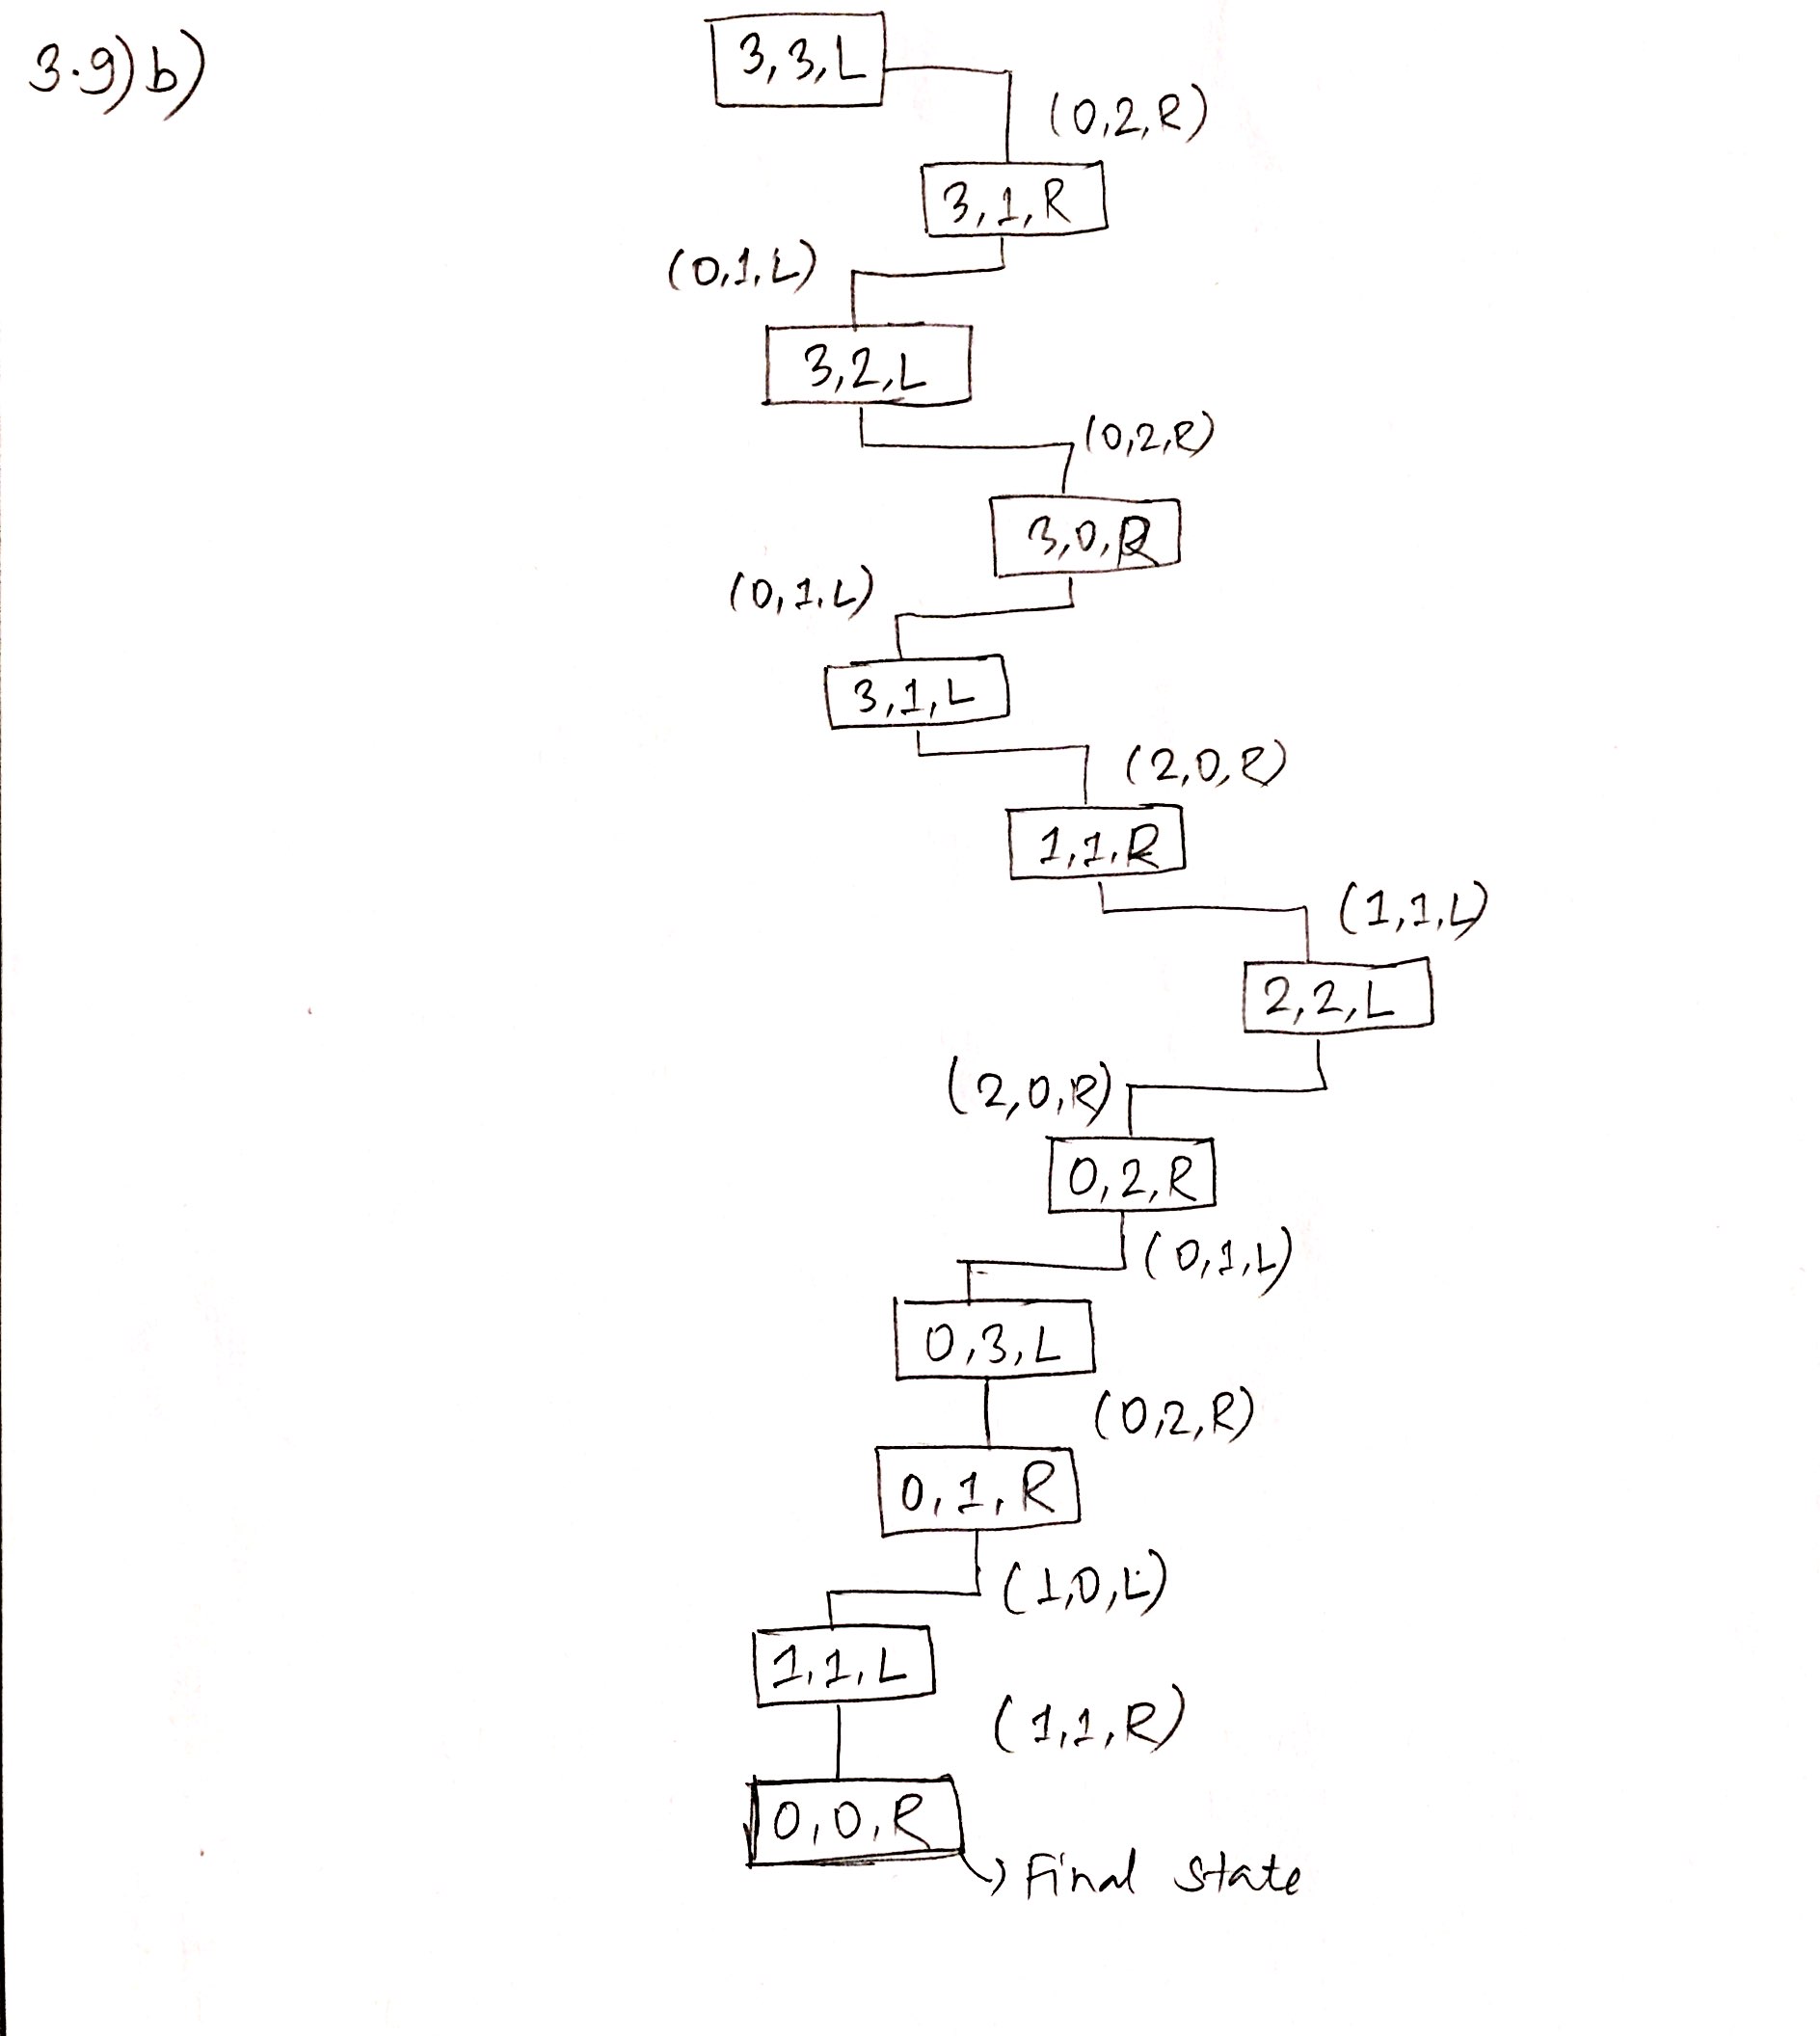 3.9) b)
3,3,L
(0,2,R)
3,1,R
(0,1,L)
3,2,L
(0,2,R)
3,0,R
(0,1,L)
3,1,L
(2,0,R)
1,1,R
(1,1,L)
2,2,L
(2,0,R)
0,2,R
(0,1,L)
0,3,L
(0,2,R)
0,1,R
(1,0,L)
1,1,L
(1,1,R)
0,0,R
Final state